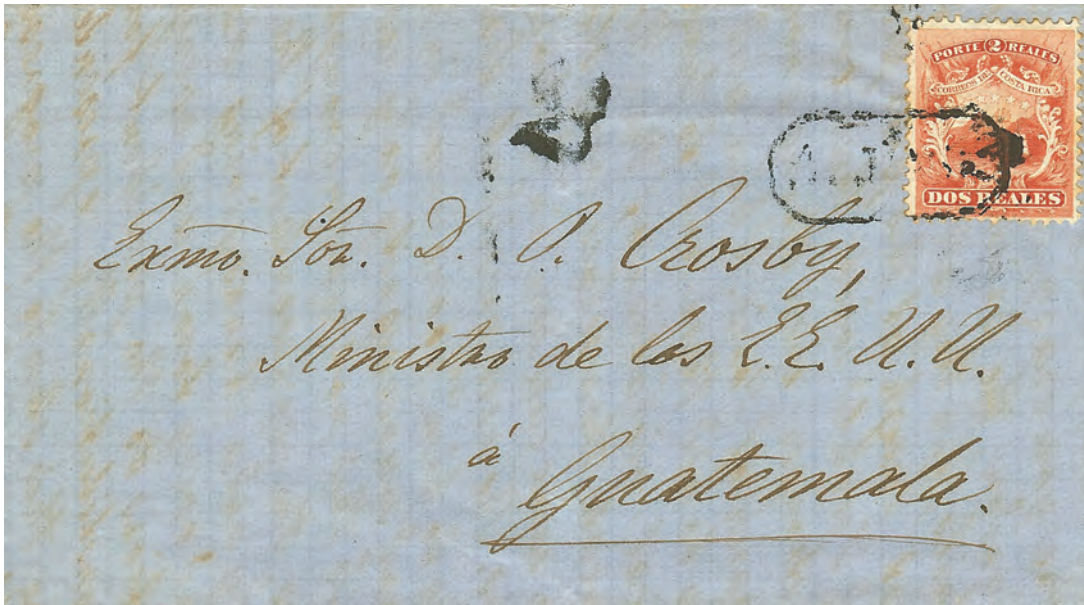 PORTE 2 REALES
CORREOS DE COSTA RICA
DOS REALES
Exmo. Sor. D. O. Crosby,
Ministro de los E.E. U.U.
á
Guatemala.